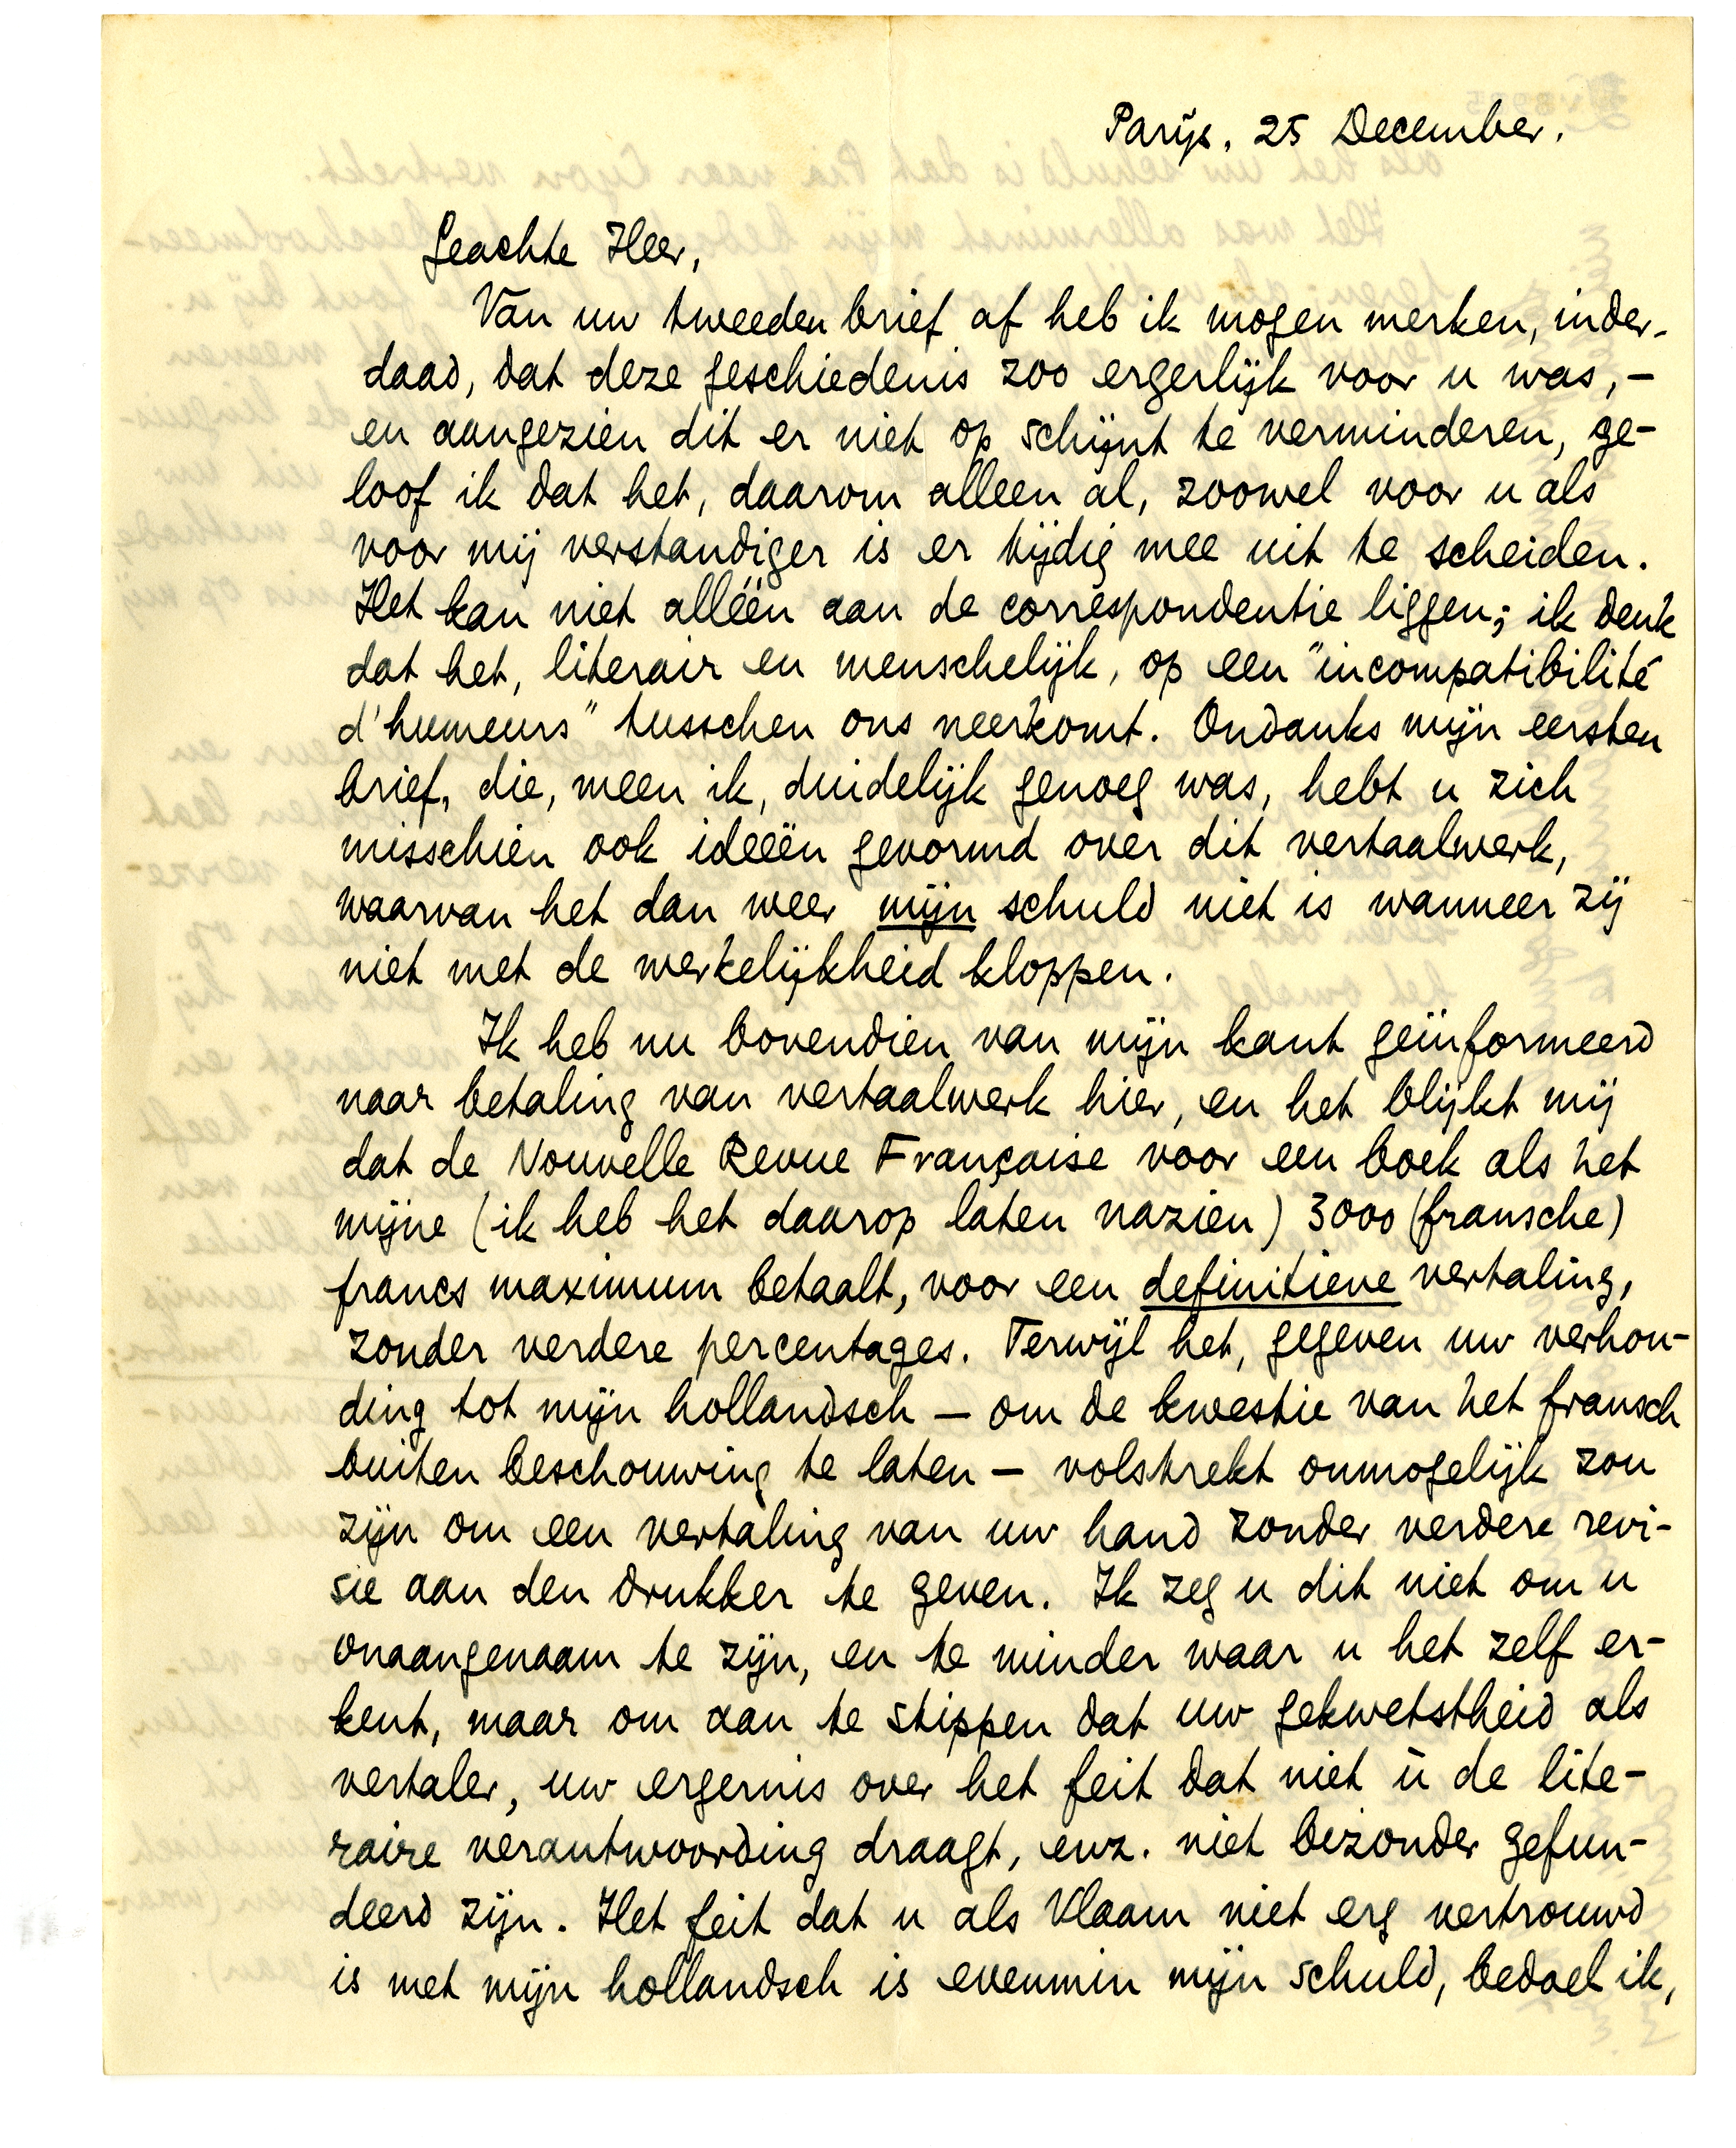 Parijs, 25 December.
Geachte Heer,
Van uw tweeden brief af heb ik mogen merken, inder-
daad, dat deze geschiedenis zoo ergerlijk voor u was, –
en aangezien dit er niet op schijnt te verminderen, ge-
loof ik dat het, daarom alleen al, zoowel voor u als
voor mij verstandiger is er tijdig mee uit te scheiden.
Het kan niet alléén aan de correspondentie liggen; ik denk
dat het, literair en menschelijk, op een "incompatibilité
d'humeurs" tusschen ons neerkomt. Ondanks mijn eersten
brief, die, meen ik, duidelijk genoeg was, hebt u zich
misschien ook ideeën gevormd over dit vertaalwerk,
waarvan het dan weer mijn schuld niet is wanneer zij
niet met de werkelijkheid kloppen.
Ik heb nu bovendien van mijn kant geïnformeerd
naar betaling van vertaalwerk hier, en het blijkt mij
dat de Nouvelle Revue Française voor een boek als het
mijne (ik heb het daarop laten nazien) 3000 (fransche)
francs maximum betaalt, voor een definitieve vertaling,
zonder verdere percentages. Terwijl het, gegeven uw verhou-
ding tot mijn hollandsch – om de kwestie van het fransch
buiten beschouwing te laten – volstrekt onmogelijk zou
zijn om een vertaling van uw hand zonder verdere revi-
sie aan den drukker te geven. Ik zeg u dit niet om u
onaangenaam te zijn, en te minder waar u het zelf er-
kent, maar om aan te stippen dat uw gekwetstheid als
vertaler, uw ergernis over het feit dat niet ù de lite-
raire verantwoording draagt, enz. niet bizonder gefun-
deerd zijn. Het feit dat u als Vlaam niet erg vertrouwd
is met mijn hollandsch is evenmin mijn schuld, bedoel ik,